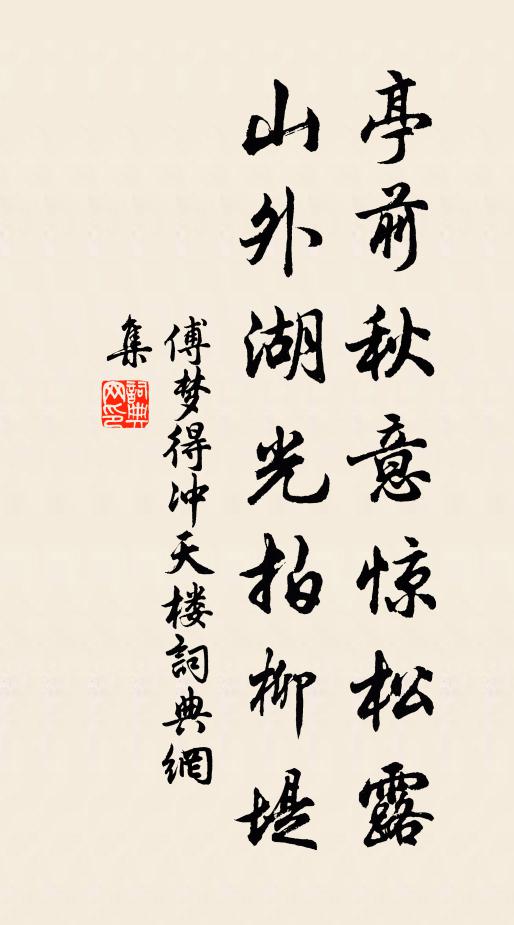 亭前秋意惊松露
山外湖光拍柳堤
傅梦得冲天楼詞典網
集
詞典网印